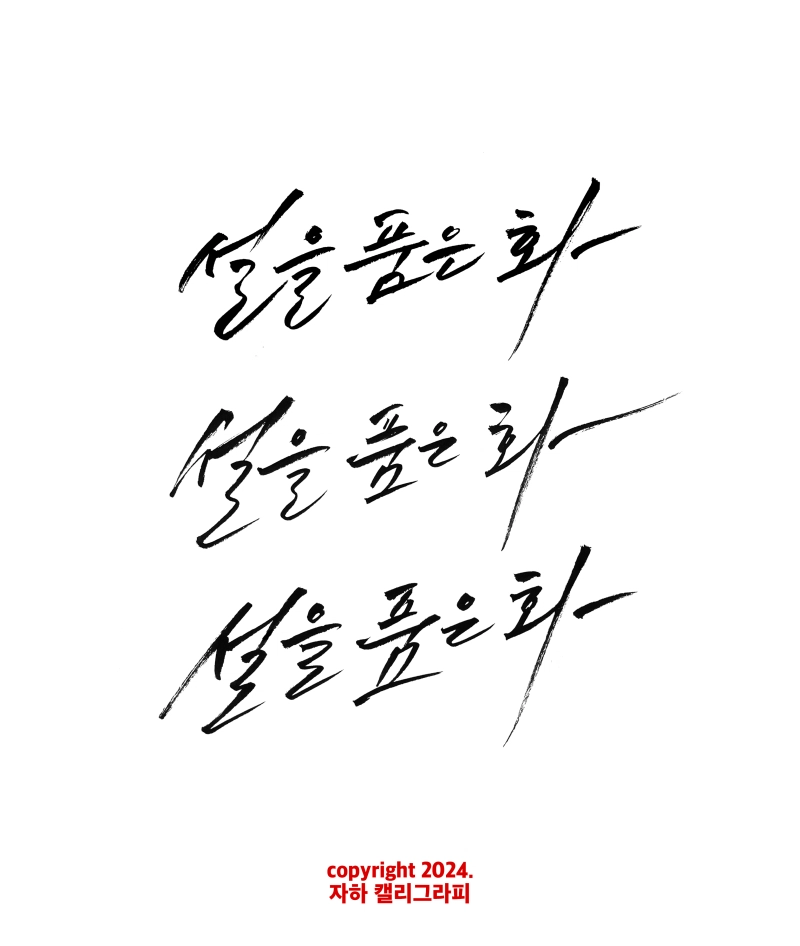 설을 품은 화
설을 품은 화
설을 품은 화
copyright 2024.
자하 캘리그라피